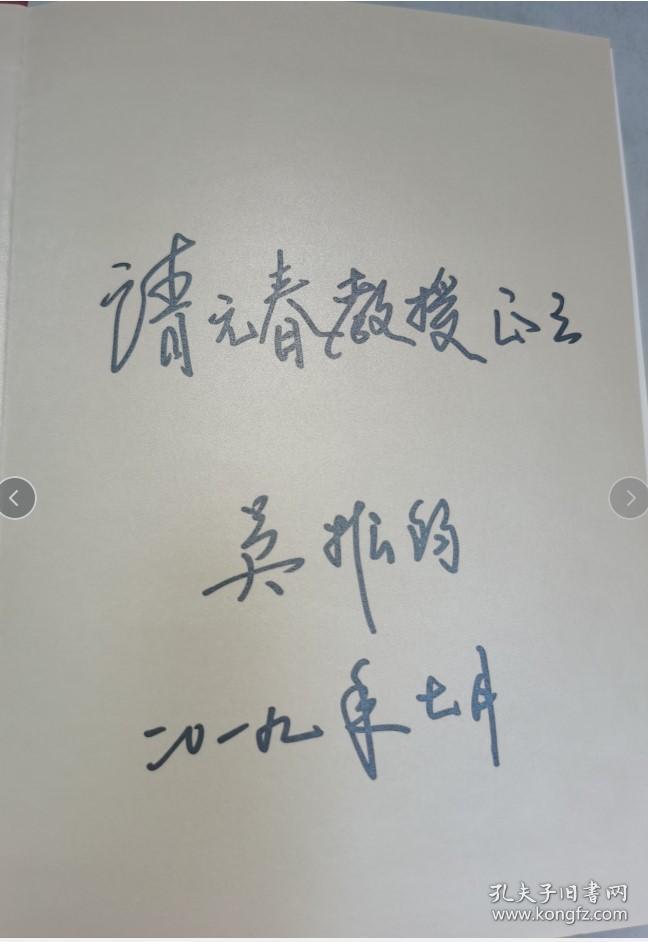 请元春教授正之
吴松的
二〇一九年七月
孔夫子旧书网
www.kongfz.com